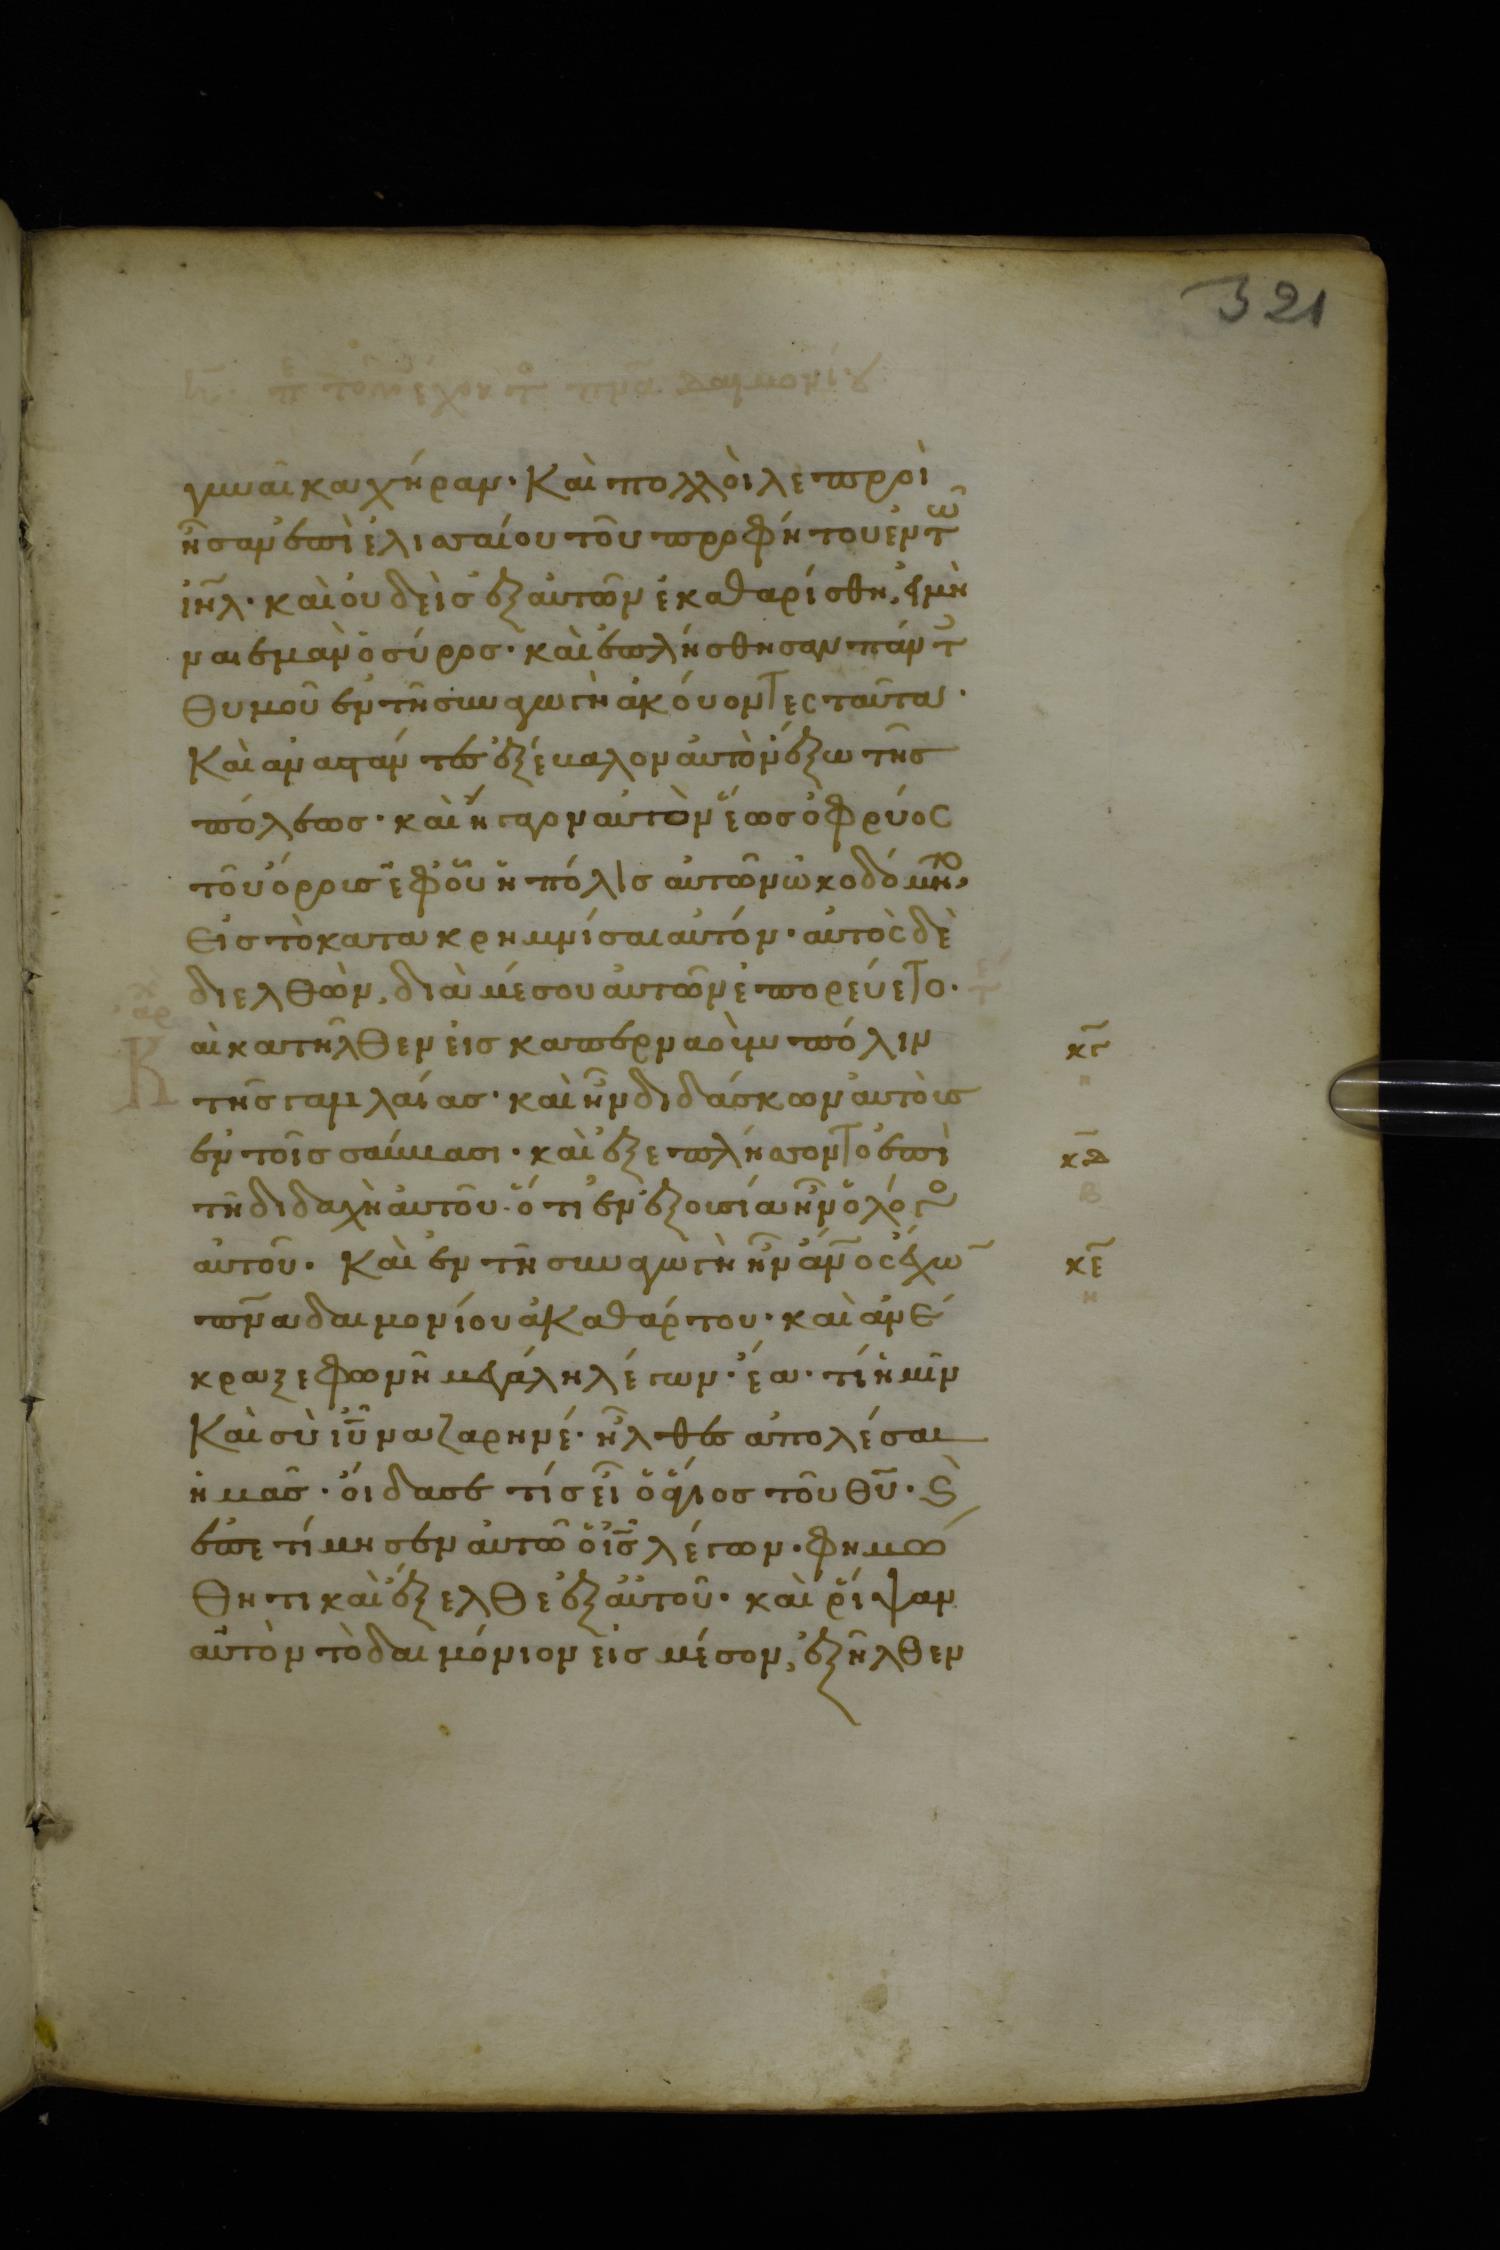 321
γυναῖκα χήραν· Καὶ πολλοὶ λεπροὶ
ἦσαν ἐπὶ ἐλισσαίου τοῦ προφήτου ἐν τῶ
ιῆλ· καὶ οὐδεὶς ἐξ αὐτῶν ἐκαθαρίσθη, εἰ μὴ
ναιεμὰν ὁ σύρος· καὶ ἐπλήσθησαν πάντ
θυμοῦ ἐν τῆ συναγωγῆ ἀκούοντες ταῦτα·
Καὶ ἀναστάντες ἐξέβαλον αὐτὸν ἔξω τῆς
πόλεως· καὶ ἤγαγον αὐτὸν ἕως ὀφρύος
τοῦ ὄρους ἐφ οὗ ἡ πόλις αὐτῶν ὠκοδόμητο,
Εἰς τὸ κατακρημνίσαι αὐτόν· αὐτὸς δὲ
διελθὼν, διὰ μέσου αὐτῶν ἐπορεύετο·
Καὶ κατῆλθεν εἰς καπερναοὺμ πόλιν
κγ
η
τῆς γαλιλαίας· καὶ ἦν διδάσκων αὐτοὺς
ἐν τοῖς σάββασι· καὶ ἐξεπλήσσοντο ἐπὶ
κδ
β
τῆ διδαχῆ αὐτοῦ· ὅτι ἐν ἐξουσία ἦν ὁ λόγος
αὐτοῦ· Καὶ ἐν τῆ συναγωγῆ ἦν ἄνος ἔχω
κε
η
πνα δαιμονίου ἀκαθάρτου· καὶ ἀνέ
κραξε φωνῆ μεγάλη λέγων· ἔα· τί ἡμῖν
Καὶ σὺ ιῦ ναζαρηνέ· ἦλθες ἀπολέσαι
ἡμᾶς· οἶδά σε τίς εἶ ὁ ἅγιος τοῦ θυ· Ϗ
ἐπετίμησεν αὐτῶ ὁ ις λέγων· φημώ
θητι καὶ ἔξελθε ἐξ αὐτοῦ· καὶ ῥίψαν
αὐτὸν τὸ δαιμόνιον εἰς μέσον, ἐξῆλθεν